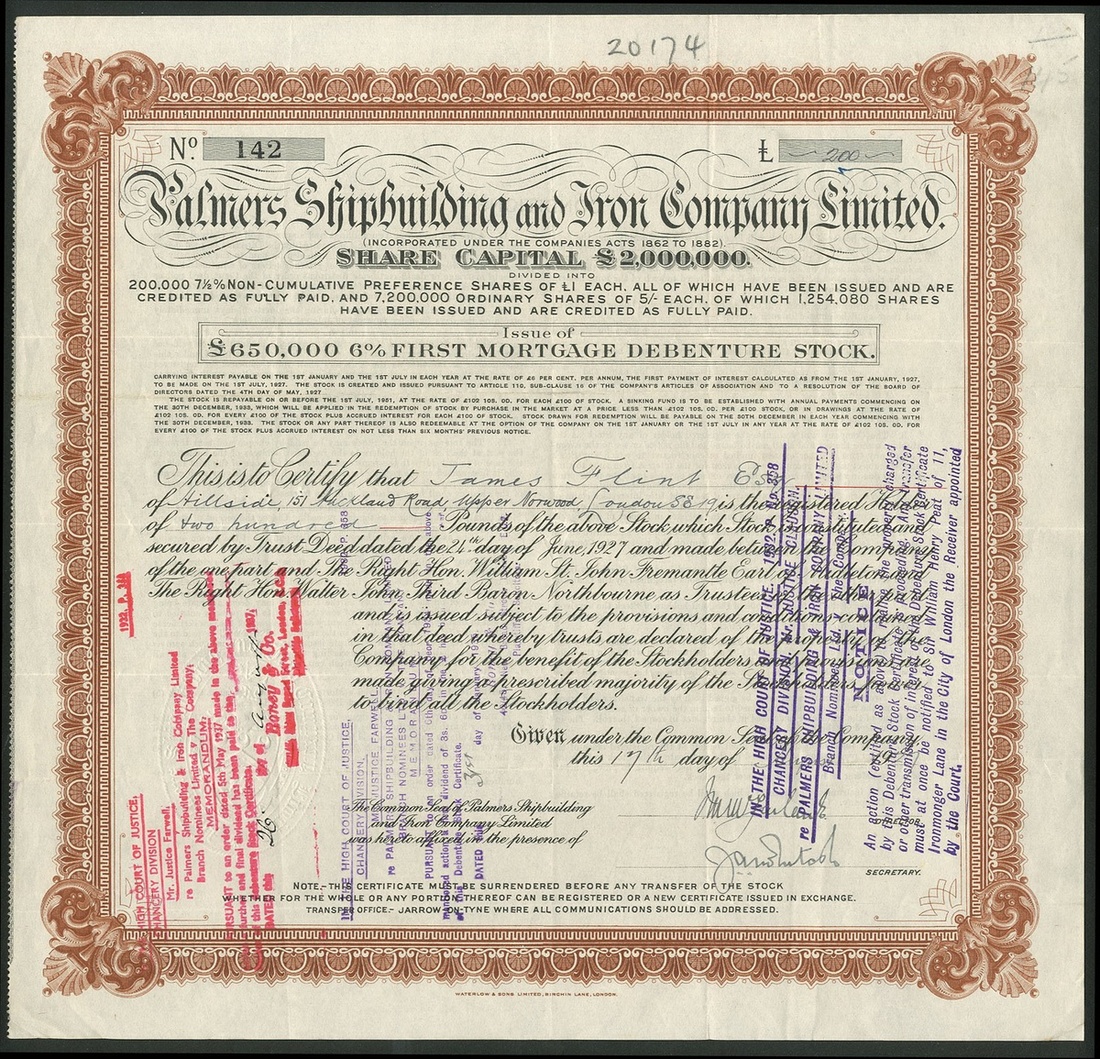 20174
No. 142
£ 200
Palmers Shipbuilding and Iron Company Limited.
(INCORPORATED UNDER THE COMPANIES ACTS 1862 TO 1882).
SHARE CAPITAL £2,000,000.
DIVIDED INTO
200,000 7½% NON-CUMULATIVE PREFERENCE SHARES OF £1 EACH, ALL OF WHICH HAVE BEEN ISSUED AND ARE
CREDITED AS FULLY PAID, AND 7,200,000 ORDINARY SHARES OF 5/- EACH, OF WHICH 1,254,080 SHARES
HAVE BEEN ISSUED AND ARE CREDITED AS FULLY PAID.
Issue of
£650,000 6% FIRST MORTGAGE DEBENTURE STOCK.
CARRYING INTEREST PAYABLE ON THE 1ST JANUARY AND THE 1ST JULY IN EACH YEAR AT THE RATE OF £6 PER CENT. PER ANNUM, THE FIRST PAYMENT OF INTEREST CALCULATED AS FROM THE 1ST JANUARY, 1927,
TO BE MADE ON THE 1ST JULY, 1927. THE STOCK IS CREATED AND ISSUED PURSUANT TO ARTICLE 110, SUB-CLAUSE 16 OF THE COMPANY'S ARTICLES OF ASSOCIATION AND TO A RESOLUTION OF THE BOARD OF
DIRECTORS DATED THE 4TH DAY OF MAY, 1927
THE STOCK IS REPAYABLE ON OR BEFORE THE 1ST JULY, 1951, AT THE RATE OF £102 10S. 0D. FOR EACH £100 OF STOCK. A SINKING FUND IS TO BE ESTABLISHED WITH ANNUAL PAYMENTS COMMENCING ON
THE 30TH DECEMBER, 1933, WHICH WILL BE APPLIED IN THE REDEMPTION OF STOCK BY PURCHASE IN THE MARKET AT A PRICE LESS THAN £102 10S. 0D. PER £100 STOCK, OR IN DRAWINGS AT THE RATE OF
£102 10S. 0D. FOR EVERY £100 OF STOCK PLUS ACCRUED INTEREST FOR EACH £100 OF STOCK. STOCK DRAWN FOR REDEMPTION WILL BE PAYABLE ON THE 30TH DECEMBER IN EACH YEAR COMMENCING WITH
THE 30TH DECEMBER, 1933. THE STOCK OR ANY PART THEREOF IS ALSO REDEEMABLE AT THE OPTION OF THE COMPANY ON THE 1ST JANUARY OR THE 1ST JULY IN ANY YEAR AT THE RATE OF £102 10S. 0D. FOR
EVERY £100 OF STOCK PLUS ACCRUED INTEREST ON NOT LESS THAN SIX MONTHS' PREVIOUS NOTICE.
This is to Certify that James Flint Esq
of Hillside, 151 Auckland Road Upper Norwood London SE 19 is the registered
of two hundred Pounds of the above Stock which Stock is constituted and
secured by Trust Deed dated the 24th day of June, 1927 and made between the Company
of the one part and The Right Hon. William St. John Fremantle Earl of Midleton and
The Right Hon. Walter John Third Baron Northbourne as Trustees of the other part
and is issued subject to the provisions and conditions contained
in that deed whereby trusts are declared of the of the
Company for the benefit of the Stockholders and provision is
made giving a prescribed majority of the Stockholders power
to bind all the Stockholders.
Given under the Common Seal of the Company
this 17th day of
The Common Seal of Palmers Shipbuilding
and Iron Company Limited
was hereto affixed in the presence of
DIRECTOR.
SECRETARY.
NOTE.- THIS CERTIFICATE MUST BE SURRENDERED BEFORE ANY TRANSFER OF THE STOCK
WHETHER FOR THE WHOLE OR ANY PORTION THEREOF CAN BE REGISTERED OR A NEW CERTIFICATE ISSUED IN EXCHANGE.
TRANSFER OFFICE.- JARROW-ON-TYNE WHERE ALL COMMUNICATIONS SHOULD BE ADDRESSED.
WATERLOW & SONS LIMITED, BIRCHIN LANE, LONDON.
HIGH COURT OF JUSTICE,
CHANCERY DIVISION
Mr. Justice Farwell.
re Palmers Shipbuilding & Iron Company Limited
Branch Nominees Limited v The Company.
MEMORANDUM.
PURSUANT to an order dated 5th May 1937 made in the above
and final dividend has been paid
DATED this 26 day of August 1937.
Boney & Co.
IN THE HIGH COURT OF JUSTICE,
CHANCERY DIVISION,
MR. JUSTICE FARWELL
re PALMERS SHIPBUILDING
BRANCH NOMINEES LTD
MEMORANDUM
PURSUANT to an order dated 6th
dividend of 3s. 6
this Debenture Stock Certificate.
DATED this 31st day of
IN THE HIGH COURT OF JUSTICE. 1932. P. No. 858
CHANCERY DIVISION. Mr. JUSTICE CLAUSON.
re PALMERS SHIPBUILDING & IRON COMPANY LIMITED
Branch Nominees Ltd. v The Company
NOTICE
An action (entitled as above) to realise the property charged
by this Debenture Stock Certificate is proceeding. Any transfer
or other transmission of interest in said Debenture Stock Certificate
must at once be notified to Sir William Henry Peat of 11,
Ironmonger Lane in the City of London the Receiver appointed
by the Court.